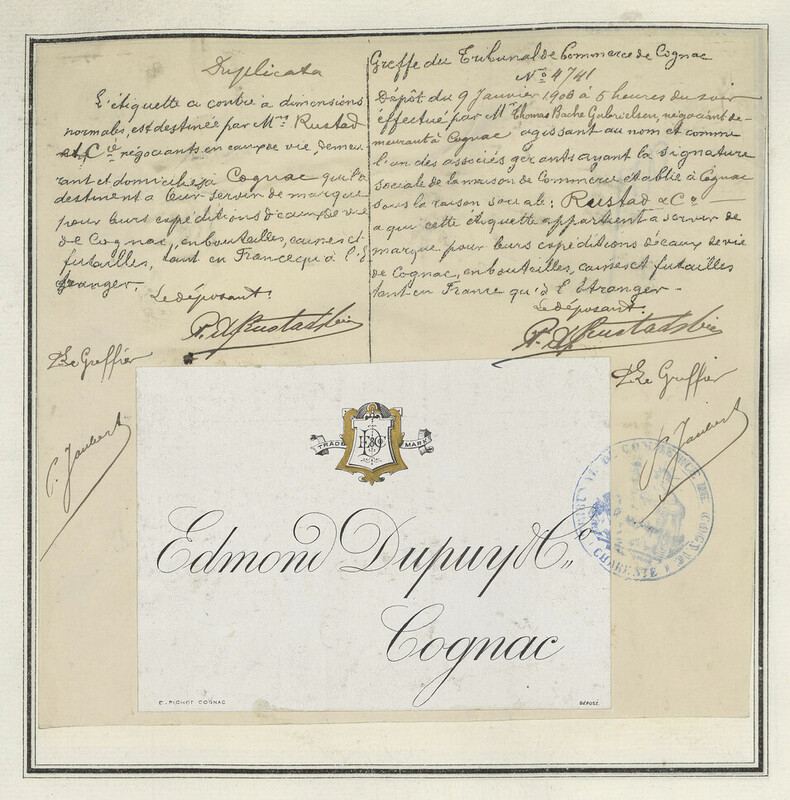 Duplicata
L'étiquette ci contre à dimensions
normales, est destinée par Mrs Rustad
et Cie négociants en eaux de vie, demeu-
rant et domiciliés à Cognac qui la
destinent à leur servir de marque
pour leurs expéditions d'eaux de vie
de Cognac, en bouteilles, caisses et
futailles, tant en France qu'à l'E
tranger.
Le déposant.
Le Greffier
P. Jaubert
Greffe du Tribunal de Commerce de Cognac
No 4741
Dépôt du 9 Janvier 1906 à 5 heures du soir
effectué par Mr Thomas Bache Gabrielsen, négociant de-
meurant à Cognac agissant au nom et comme
l'un des associés gérants ayant la signature
sociale de la maison de Commerce établie à Cognac
sous la raison sociale: Rustad & Co
à qui cette étiquette appartient à servir de
marque pour leurs expéditions d'eaux de vie
de Cognac, en bouteilles, caisses et futailles
tant en France qu'à l'Etranger.
Le déposant.
Le Greffier
P. Jaubert
TRADE MARK
Edmond Dupuy & Co
Cognac
E. PICHOT COGNAC
DÉPOSÉ
TRIBUNAL DE COMMERCE DE COGNAC
CHARENTE